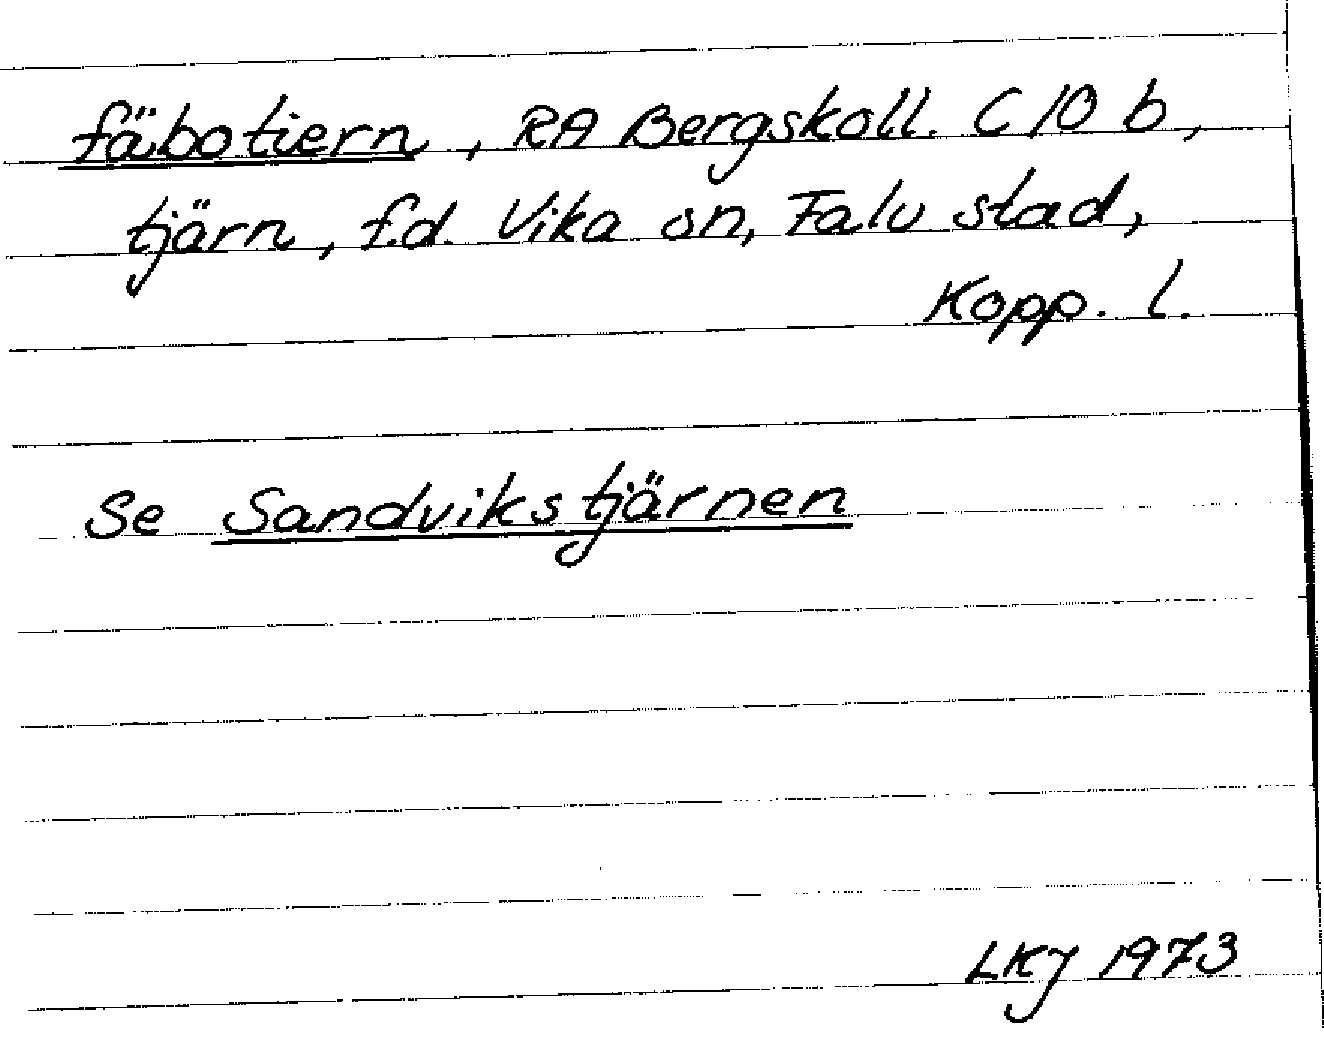 fäbotiern, RA Bergskoll. C 10 b,
tjärn, f.d. Vika sn, Falu stad,
Kopp. l.
Se Sandvikstjärnen
LKJ 1973